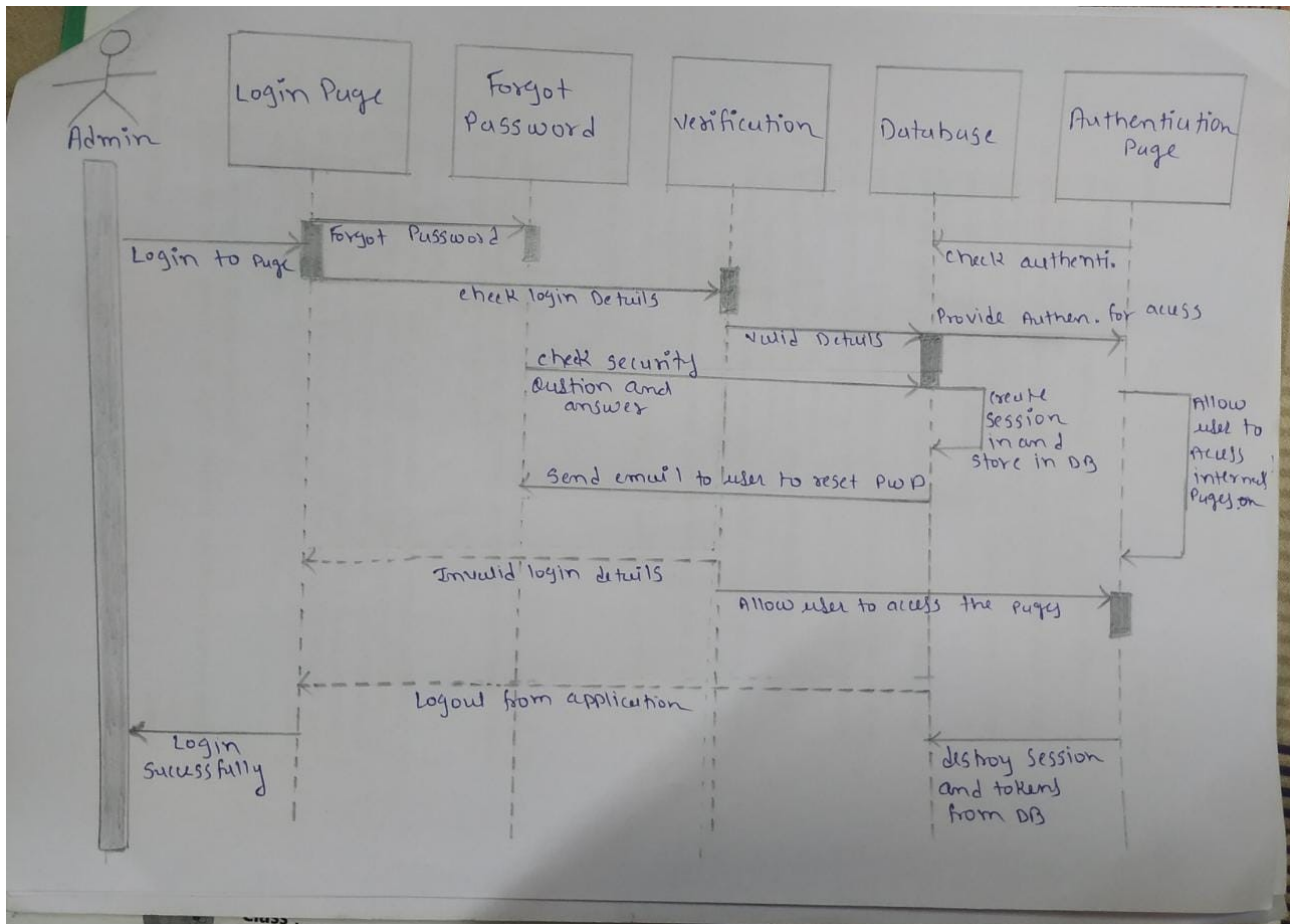 Admin
Login Page
Forgot
Password
Verification
Database
Authentication
Page
Login to Page
Forgot Password
check authenti.
check login Details
Provide Authen. for acuss
valid Details
check security
Qustion and
answer
create
session
in and
store in DB
Allow
user to
Access
internal
Pages.on
Send email to user to reset PWD
Invalid login details
Allow user to access the pages
Logout from application
Login
Successfully
destroy session
and tokens
from DB